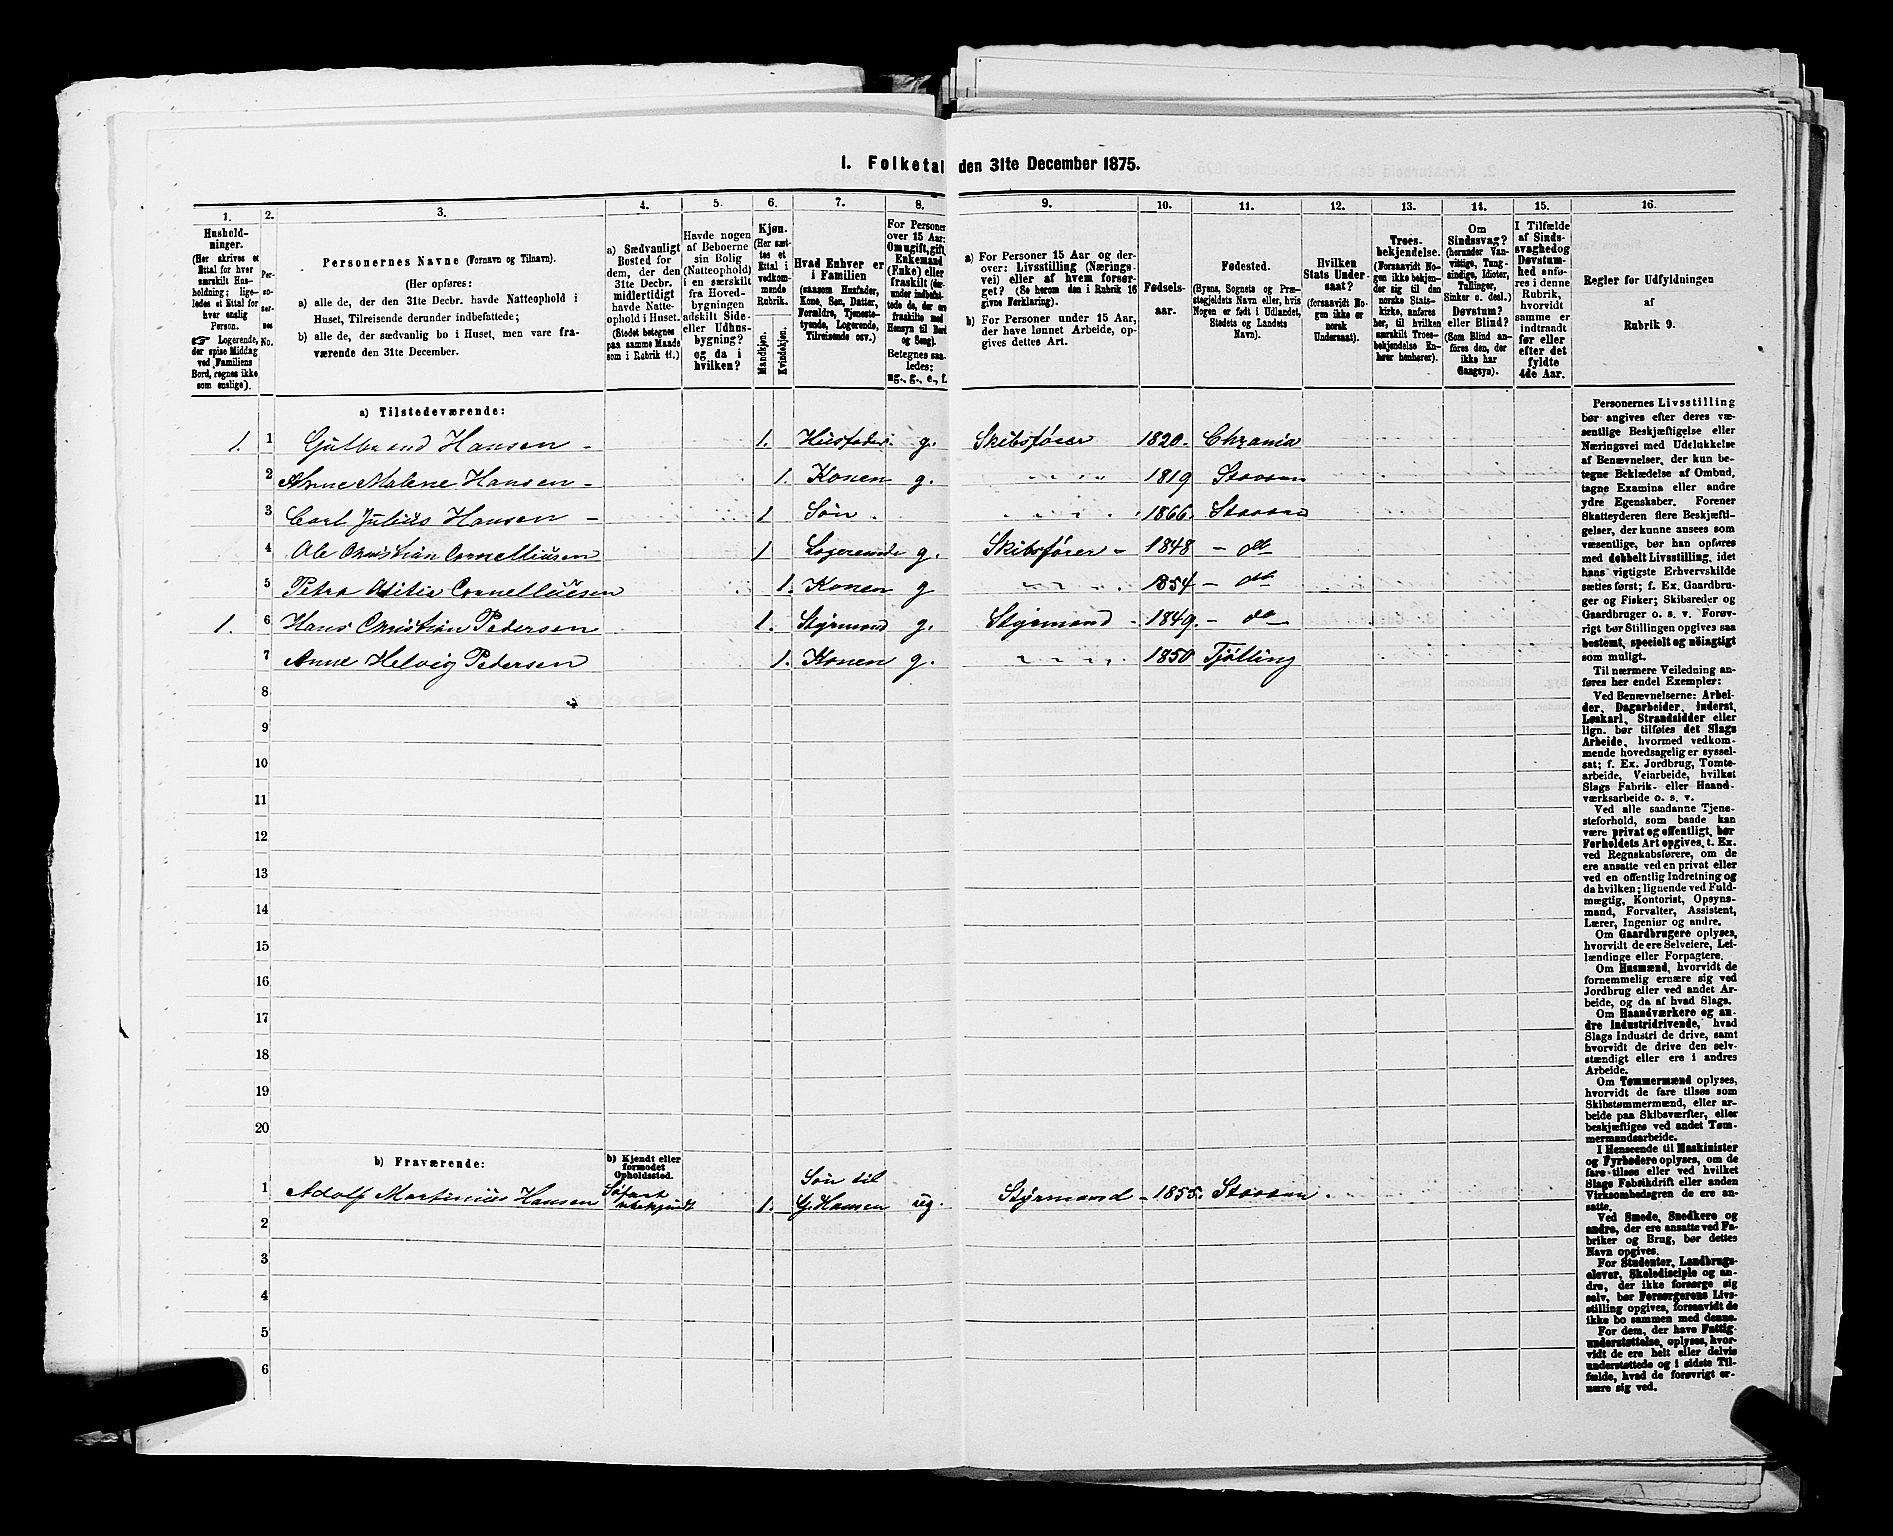 1. Folketal den 31te December 1875.
1. 2. 3. 4. 5. 6. 7. 8. 9. 10. 11. 12. 13. 14. 15. 16.
Hushold-
ninger.
(Her skrives et
Ettal for hver
særskilt Hus-
holdning; lige-
ledes et Ettal for
hver enslig
Person.
☞ Logerende,
der spise Middag
ved Familiens
Bord, regnes ikke
som enslige).
Per-
so-
ner-
nes
No.
Personernes Navne (Fornavn og Tilnavn).
(Her opføres:
a) alle de, der den 31te Decbr. havde Natteophold i
Huset, Tilreisende derunder indbefattede;
b) alle de, der sædvanlig bo i Huset, men vare fra-
værende den 31te December.
a) Sædvanligt
Bosted for
dem, der den
31te Decbr.
midlertidigt
havde Natte-
ophold i Huset.
(Stedet betegnes
paa samme Maade
som i Rubrik 11.)
Havde nogen
af Beboerne
sin Bolig
(Natteophold)
i en særskilt
fra Hoved-
bygningen
adskilt Side-
eller Udhus-
bygning?
og da i
hvilken?
Kjøn.
(Her sæt-
tes et
Ettal i
vedkom-
mende
Rubrik.
Mandkjøn.
Kvindekjøn.
Hvad Enhver er
i Familien
(saasom Husfader,
Kone, Søn, Datter,
Forældre, Tjeneste-
tyende, Logerende,
Tilreisende osv.)
For Personer
over 15 Aar:
Om ugift, gift,
Enkemand
(Enke) eller
fraskilt
og Seng).
Betegnes saa-
ledes:
ug., g., e., f.
a) For Personer 15 Aar og der-
over: Livsstilling (Nærings-
vei) eller af hvem forsør-
get? (Se herom den i Rubrik 16
givne Forklaring).
b) For Personer under 15 Aar,
der have lønnet Arbeide, op-
gives dettes Art.
Fødsels-
aar.
Fødested.
(Byens, Sognets og Præ-
stegjeldets Navn eller, hvis
Nogen er født i Udlandet,
Stedets og Landets
Navn).
Hvilken
Stats Under-
saat?
(forsaavidt No-
gen ikke er
norsk
Undersaat).
Troes-
bekjendelse.
(Forsaavidt No-
gen ikke bekjen-
der sig til den
norske Stats-
kirke, anføres
her, til hvilken
særskilt Troes-
bekjendelse En-
hver henhører).
Om
Sindssvag?
(herunder Van-
vittige, Tung-
sindige, Idioter,
Tullinger,
Sinker o. desl.)
Døvstum?
eller Blind?
(Som Blind an-
føres den, der
ikke har
Gangsyn).
I Tilfælde
af Sinds-
svaghed og
Døvstum-
hed anfø-
res i denne
Rubrik,
hvorvidt
samme er
indtraadt
før eller
efter det
fyldte
4de Aar.
Regler for Udfyldningen
af
Rubrik 9.
a) Tilstedeværende:
1. 1 Gulbrand Hansen 1. Husfader g. Skibsfører 1820. Chrania
2 Anne Malene Hansen 1. Konen g. " " " 1819 Stavern
3 Carl Julius Hansen 1 Søn 1866. Stavern
4 Ole Christian Cornelliusen 1 Logerende g. Skibsfører 1848 do
5 Petra Cornelliusen 1. Konen g " " " 1854 do
1. 6 Hans Christian Pedersen 1. Styrmand g. Styrmand 1849. do
7 Anne Helvig Pedersen 1. Konen g. " " " 1850 Tjølling
8
9
10
11
12
13
14
15
16
17
18
19
20
b) Fraværende:
b) Kjendt eller
formodet
Opholdssted.
1 Adolf Martinius Hansen Søfart ubekjendt 1. Søn til G. Hansen ug. Styrmand 1855. Stavern
2
3
4
5
6
Personernes Livsstilling
bør angives efter deres væ-
sentlige Beskjæftigelse eller
Næringsvei med Udelukkelse
af Benævnelser, der kun be-
tegne Beklædelse af Ombud,
tagne Examina eller andre
ydre Egenskaber. Forener
Skatteyderen flere Beskjæfti-
gelser, der kunne ansees som
væsentlige, bør han opføres
med dobbelt Livsstilling, idet
hans vigtigste Erhvervskilde
sættes først; f. Ex. Gaardbru-
ger og Fisker; Skibsreder og
Gaardbruger o. s. v. Forøv-
rigt bør Stillingen opgives saa
bestemt, specielt og nøiagtigt
som muligt.
Til nærmere Veiledning an-
føres her endel Exempler:
Ved Benævnelserne: Arbei-
der, Dagarbeider, Inderst,
Løskarl, Strandsidder eller
lign. bør tilføies det Slags
Arbeide, hvormed vedkom-
mende hovedsagelig er syssel-
sat; f. Ex. Jordbrug, Tomte-
arbeide, Veiarbeide, hvilket
Slags Fabrik- eller Haand-
værksarbeide o. s. v.
Ved alle saadanne Tjene-
steforhold, som baade kan
være privat og offentligt, bør
Forholdets Art opgives, t. Ex.
ved Regnskabsførere, om de
ere ansatte ved en privat eller
ved en offentlig Indretning og
da hvilken; lignende ved Fuld-
mægtig, Kontorist, Opsyns-
mand, Forvalter, Assistent,
Lærer, Ingeniør og andre.
Om Gaardbrugere oplyses,
hvorvidt de ere Selveiere, Lei-
lændinge eller Forpagtere.
Om Husmænd, hvorvidt de
fornemmelig ernære sig ved
Jordbrug eller ved andet Ar-
beide, og da af hvad Slags.
Om Haandværkere og an-
dre Industridrivende, hvad
Slags Industri de drive, samt
hvorvidt de drive den selv-
stændigt eller ere i andres
Arbeide.
Om Tømmermænd oplyses,
hvorvidt de fare tilsøs som
Skibstømmermænd, eller ar-
beide paa Skibsværfter, eller
beskjæftiges ved andet Tøm-
mermandsarbeide.
I Henseende til Maskinister
og Fyrbødere oplyses, om de
fare tilsøs eller ved hvilket
Slags Fabrikdrift eller anden
Virksomhedsgren de ere an-
satte.
Ved Smede, Snedkere og
andre, der ere ansatte ved Fa-
briker og Brug, bør dettes
Navn opgives.
For Studenter, Landbrugs-
elever, Skoledisciple og an-
dre, der ikke forsørge sig
selv, bør Forsørgerens Livs-
stilling opgives, forsaavidt de
ikke bo sammen med denne.
For dem, der have Fattig-
understøttelse, oplyses, hvor-
vidt de ere helt eller delvis
understøttede og i sidste Til-
fælde, hvad de forøvrigt er-
nære sig ved.